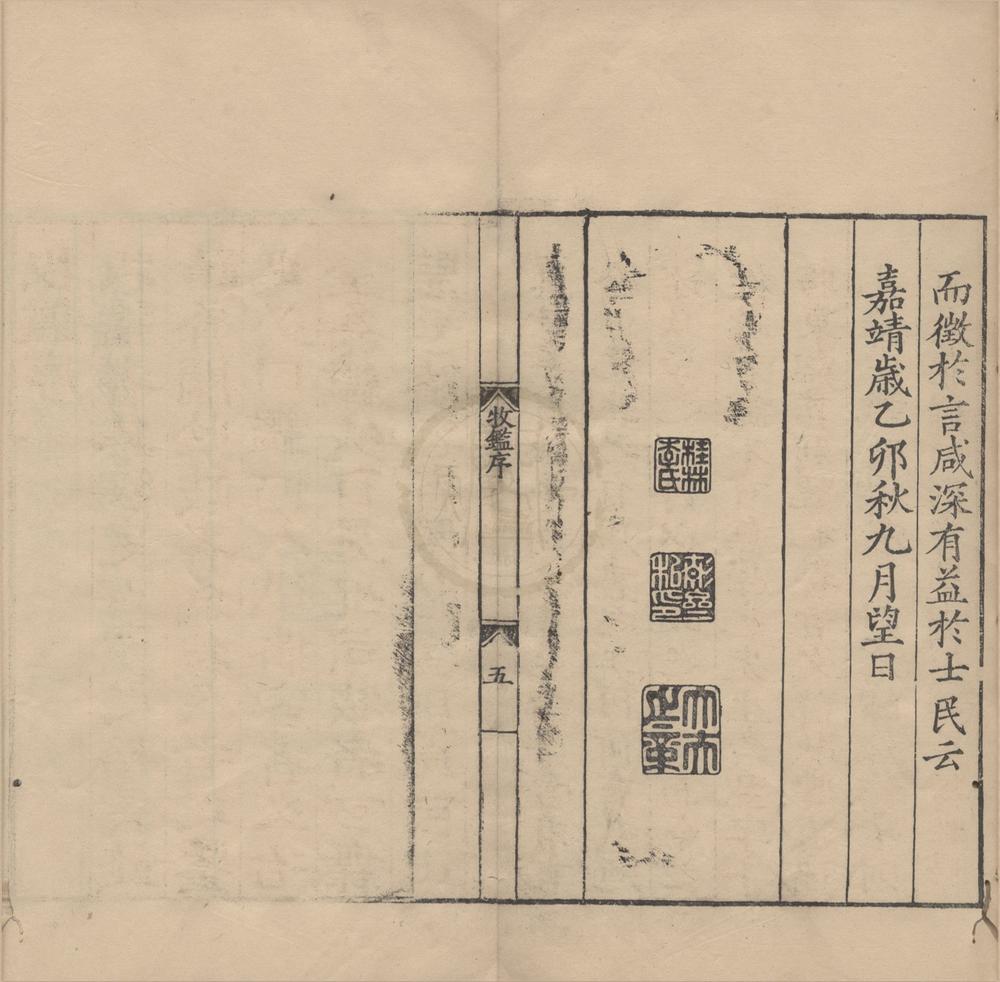 而徵於言咸深有益於士民云
嘉靖歲乙卯秋九月望日
桂林李氏
牧鑑序
五